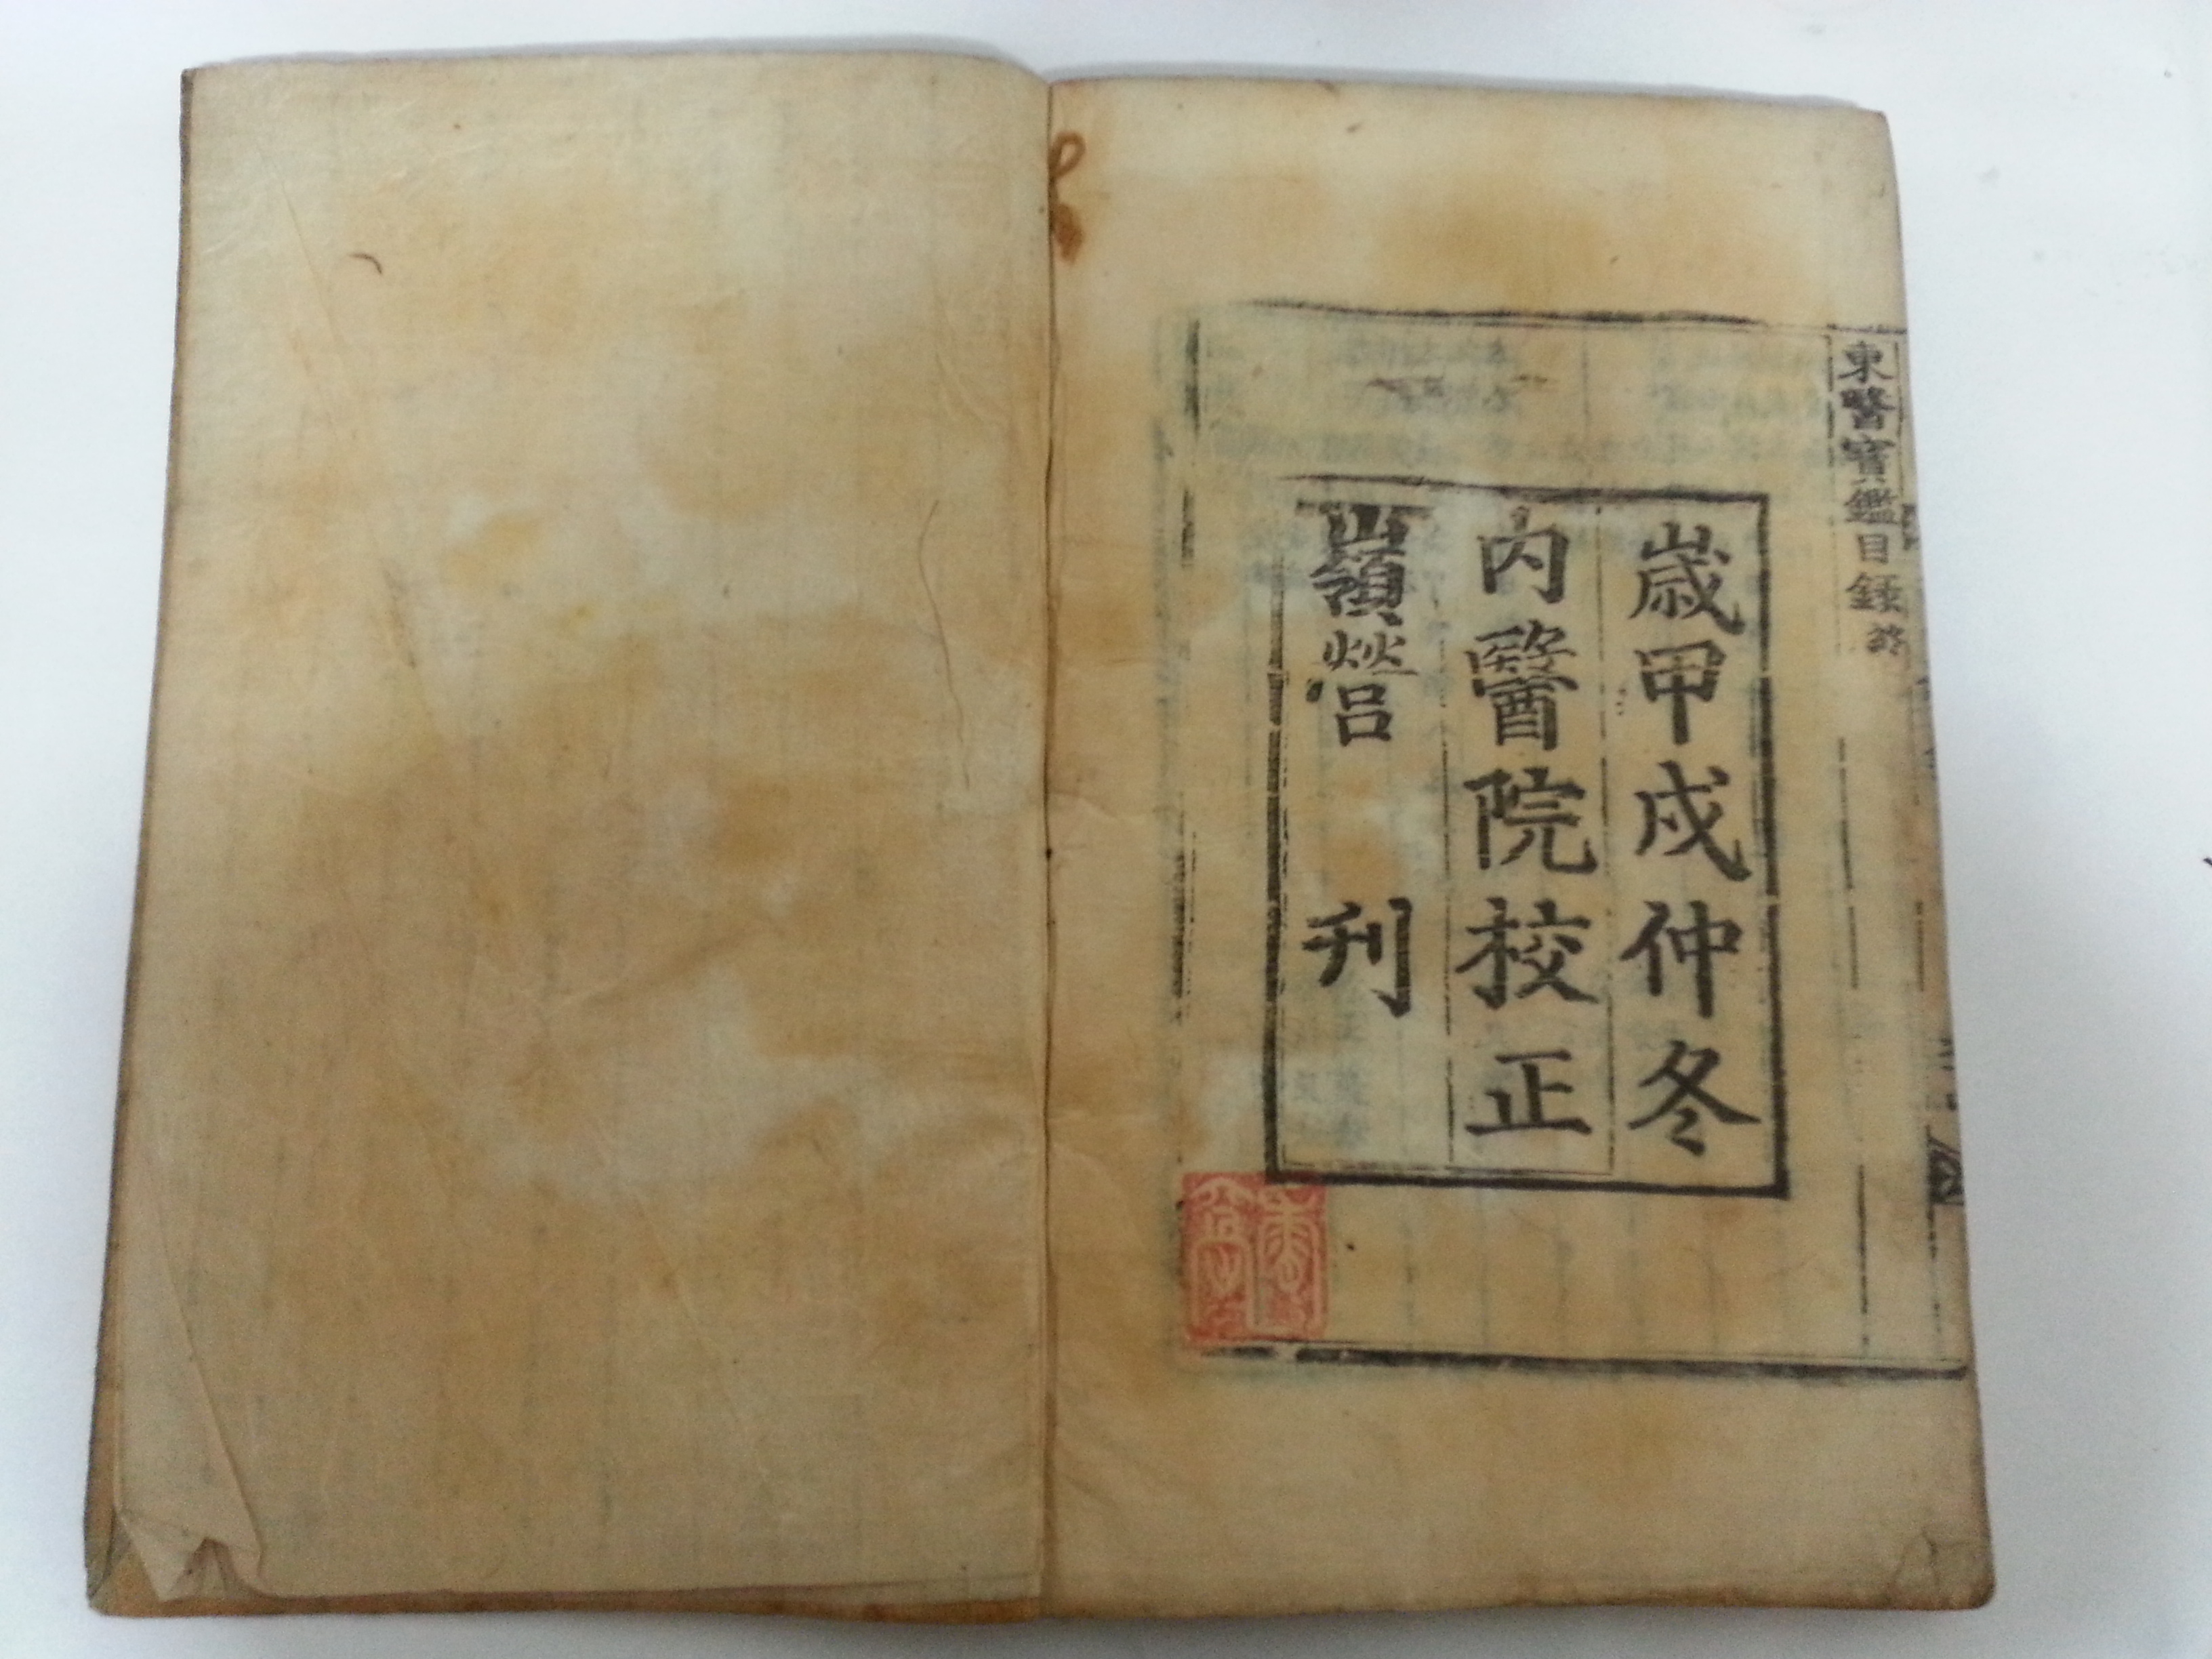 東醫寶鑑目錄
歲甲戌仲冬
內醫院校正
嶺營 刊